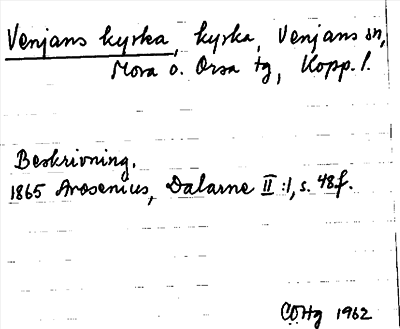 Venjans kyrka, kyrka, Venjans sn,
Mora o. Orsa tg, Kopp. l.
Beskrivning.
1865 Arosenius, Dalarne II:1, s. 48f.
CÖHg 1962